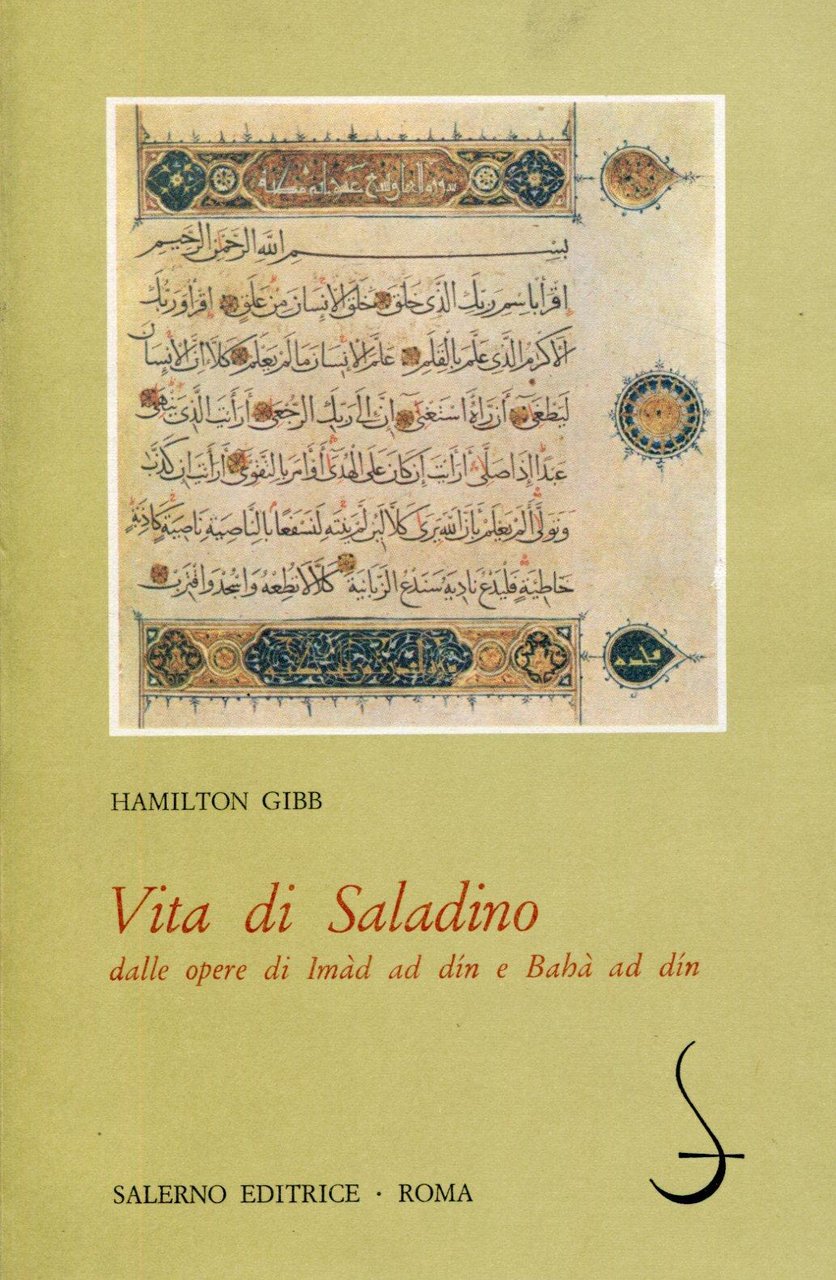 بسم الله الرحمن الرحيم
اقرأ باسم ربك الذي خلق خلق الإنسان من علق اقرأ وربك
الأكرم الذي علم بالقلم علم الإنسان ما لم يعلم كلا إن الإنسان
ليطغى أن رآه استغنى إن إلى ربك الرجعى أرأيت الذي ينهى
عبدا إذا صلى أرأيت إن كان على الهدى أو أمر بالتقوى أرأيت إن كذب
وتولى ألم يعلم بأن الله يرى كلا لئن لم ينته لنسفعا بالناصية ناصية كاذبة
خاطئة فليدع ناديه سندع الزبانية كلا لا تطعه واسجد واقترب
HAMILTON GIBB
Vita di Saladino
dalle opere di Imàd ad dín e Bahà ad dín
SALERNO EDITRICE · ROMA